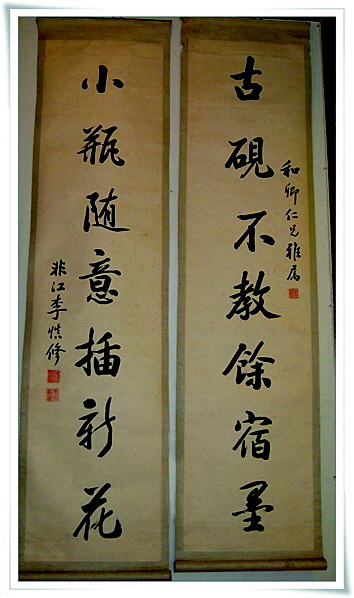 古硯不教餘宿墨
和卿仁兄雅属
小瓶随意插新花
非江李慎修